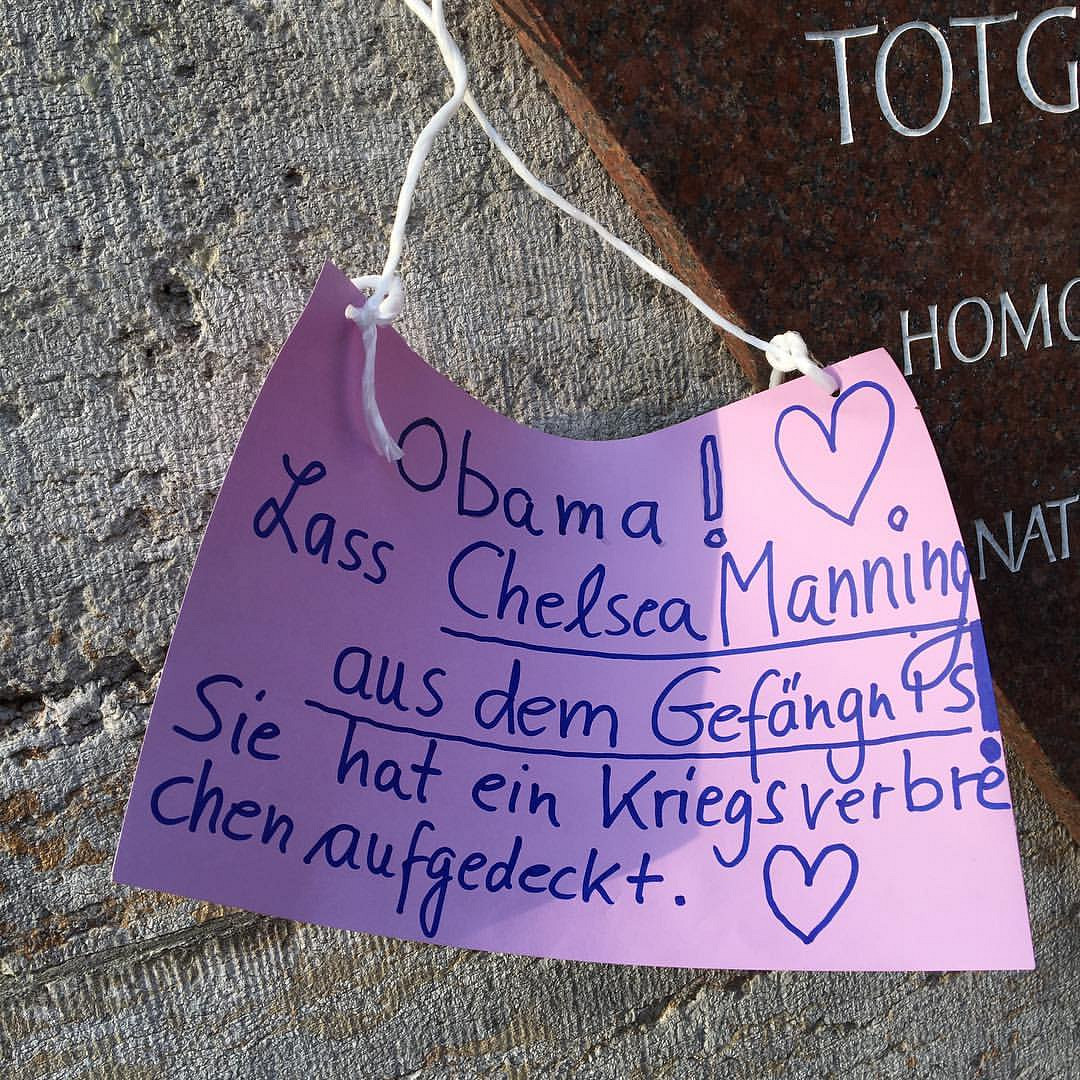 TOTG
HOMO
NAT
Obama!
Lass Chelsea Manning
aus dem Gefängnis!
Sie hat ein Kriegsverbre
chen aufgedeckt.